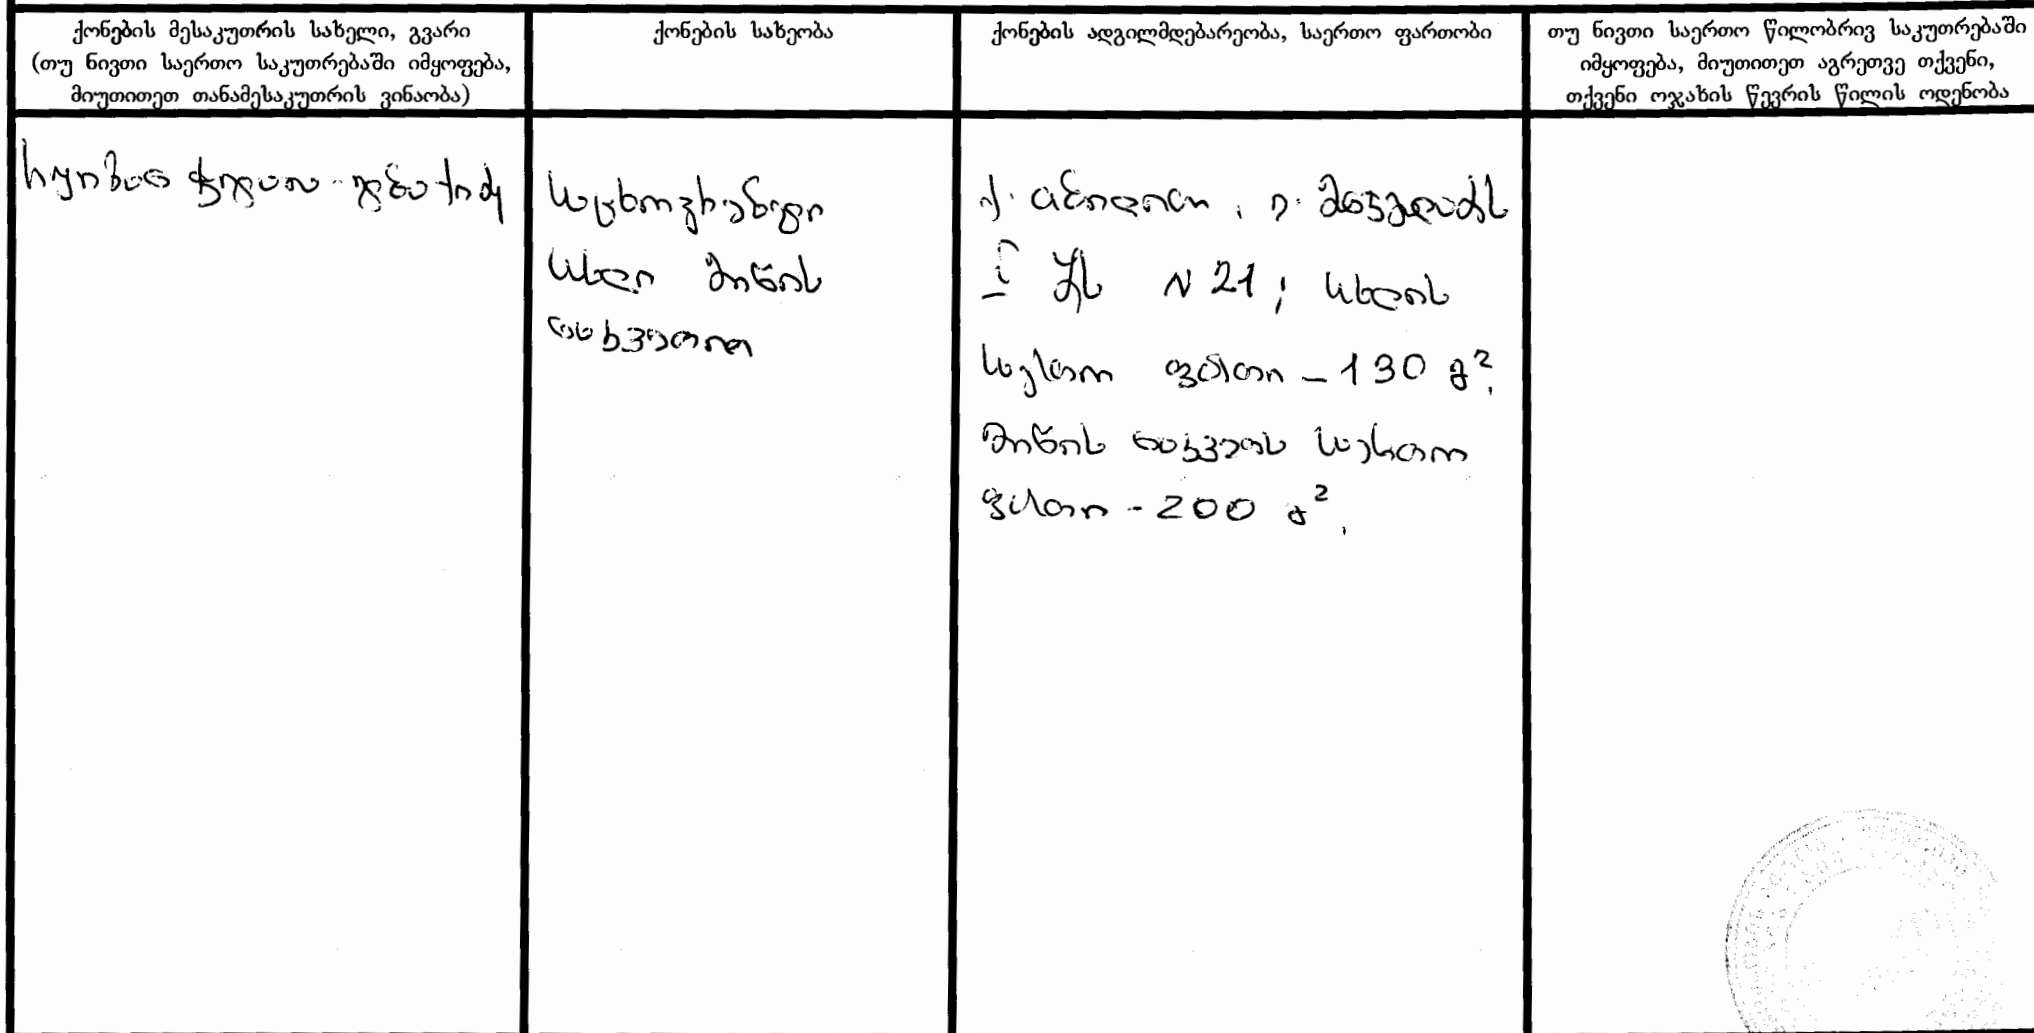 ქონების მესაკუთრის სახელი, გვარი
(თუ ნივთი საერთო საკუთრებაში იმყოფება,
მიუთითეთ თანამესაკუთრის ვინაობა)
ქონების სახეობა
ქონების ადგილმდებარეობა, საერთო ფართობი
თუ ნივთი საერთო წილობრივ საკუთრებაში
იმყოფება, მიუთითეთ აგრეთვე თქვენი,
თქვენი ოჯახის წევრის წილის ოდენობა
საცხოვრებელი
სახლი მიწის
ნაკვეთით
ქ. თბილისი,
I შეს N 21; სახლის
საერთო ფართი – 130 მ²,
მიწის ნაკვეთის საერთო
ფართი - 200 მ²,